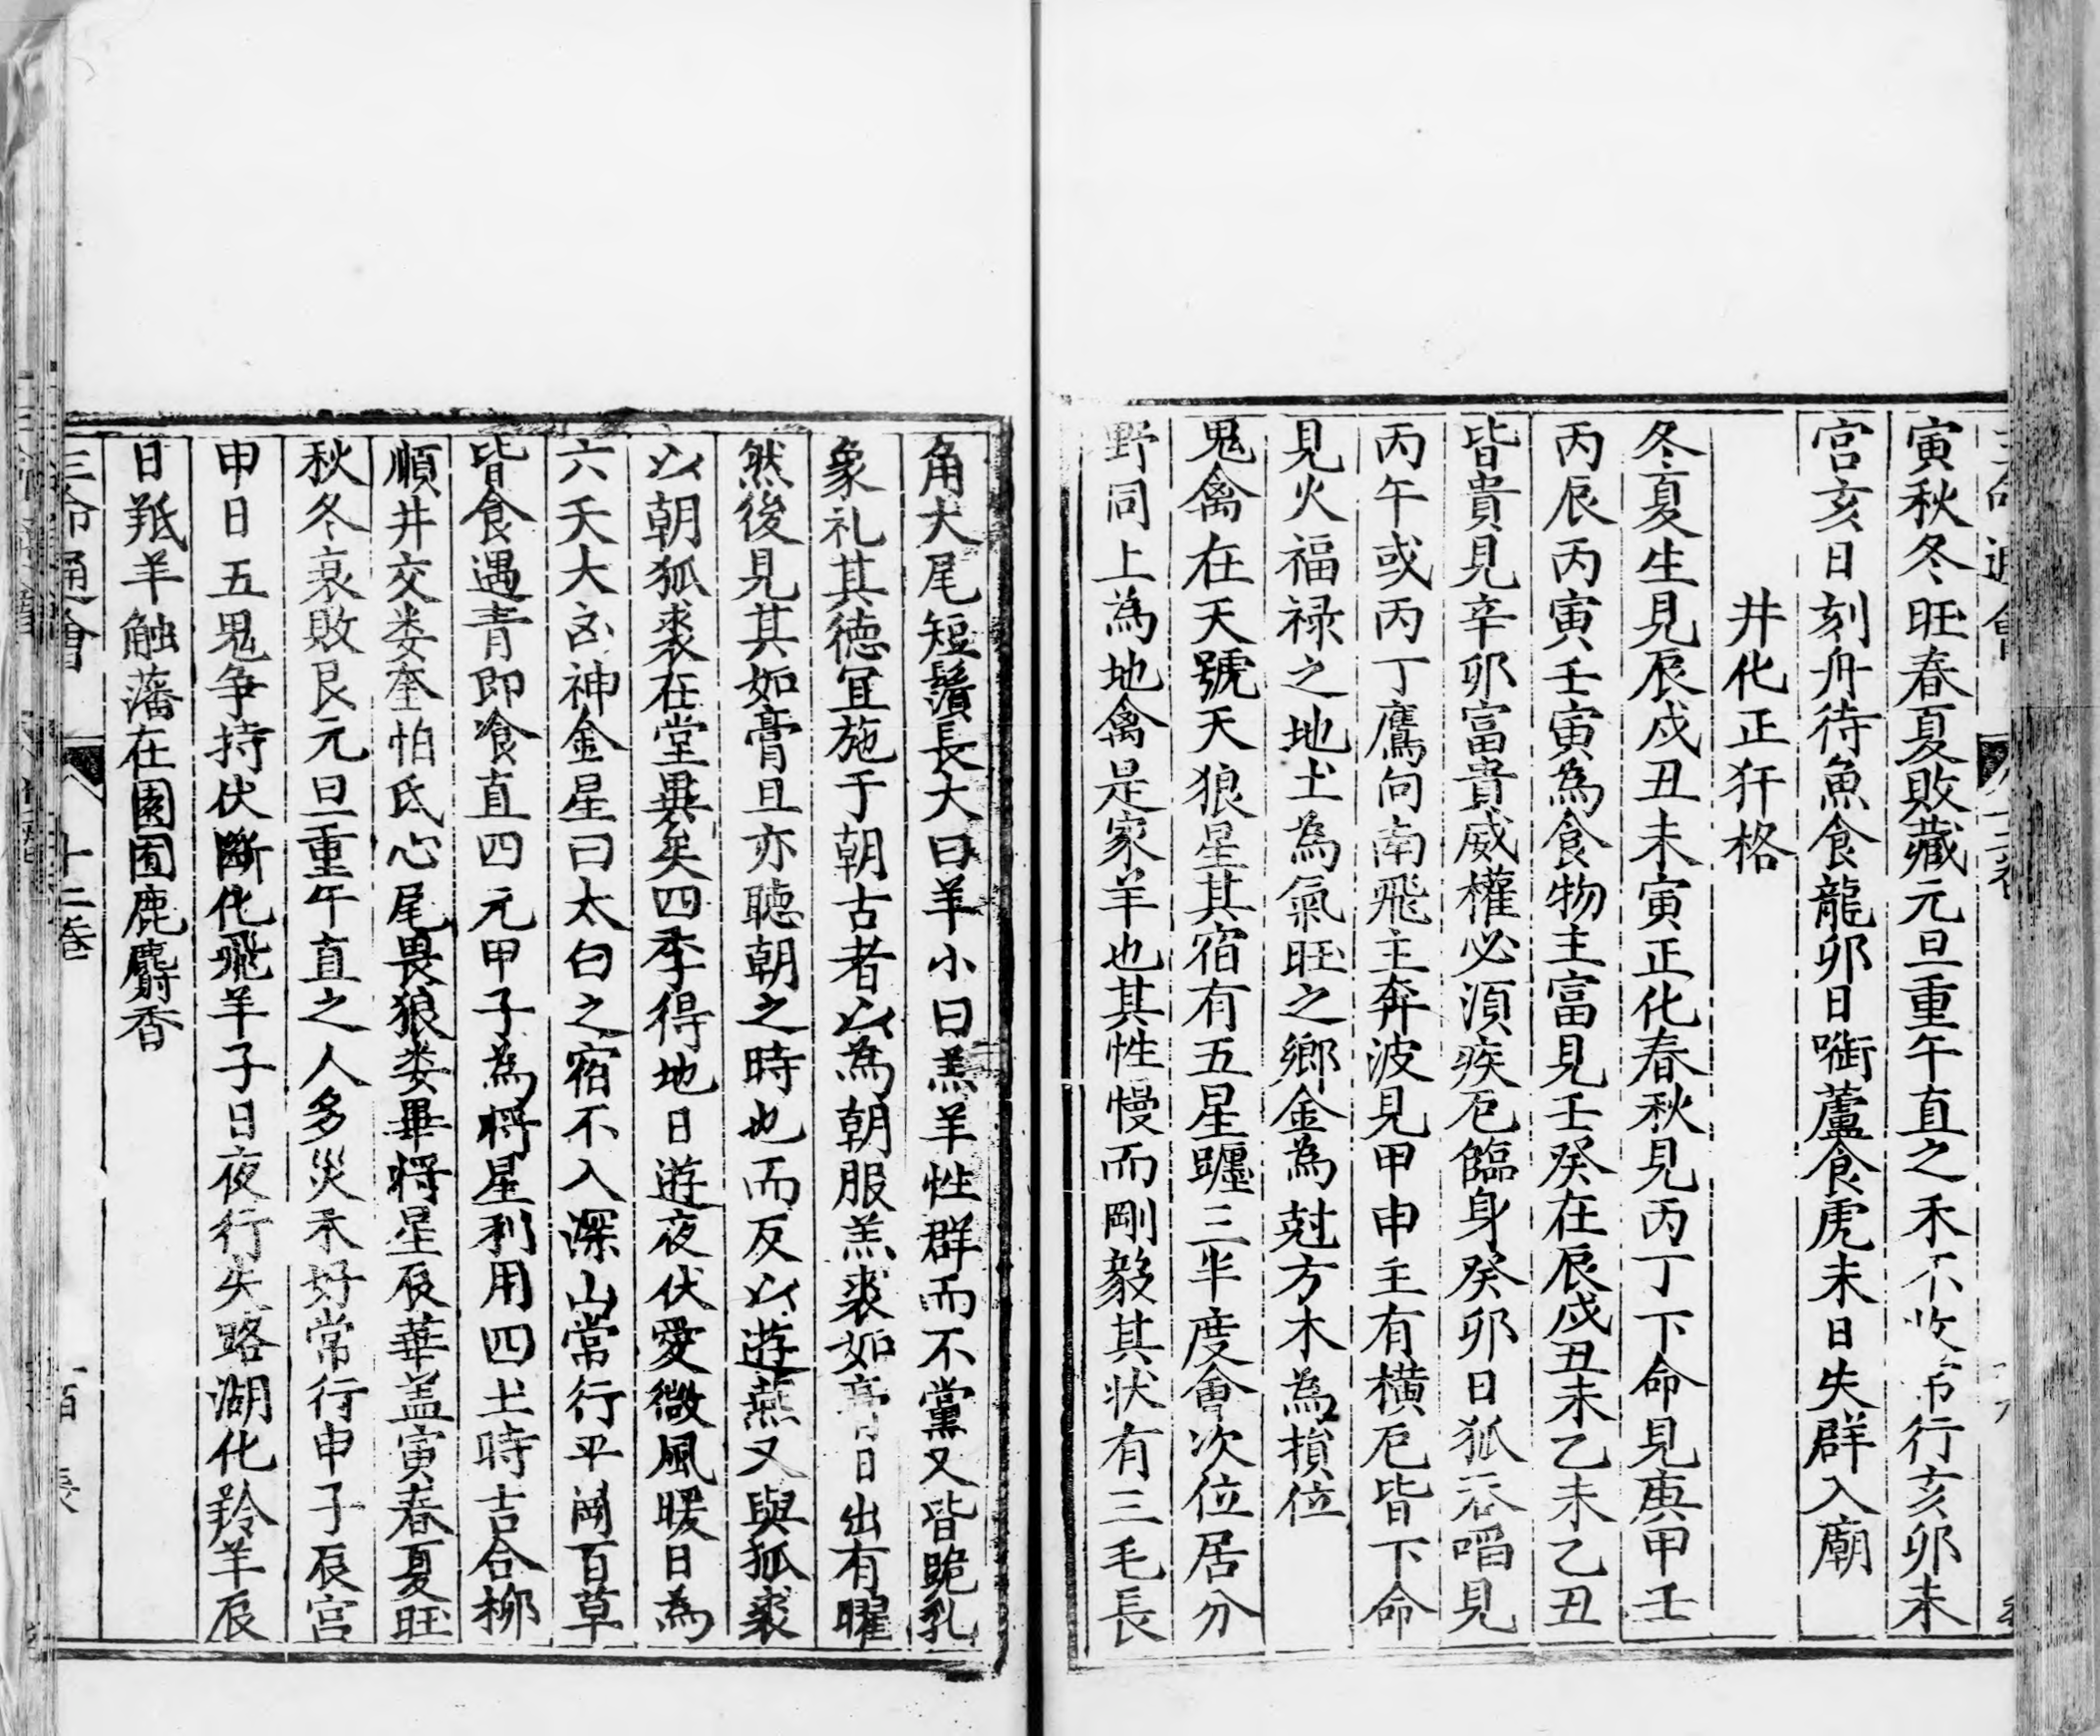 寅秋冬旺春夏敗藏元旦重午直之禾不收常行亥卯未
宮亥日刻舟待魚食龍卯日㘅蘆食虎未日失群入廟
井化正犴格
冬夏生見辰戍丑未寅正化春秋見丙丁下命見庚甲壬
丙辰丙寅壬寅為食物主富見壬癸在辰戍丑未乙未乙丑
皆貴見辛卯富貴威權必湏疾厄臨身癸卯日狐吞啗見
丙午或丙丁鷹向南飛主奔波見甲申主有橫厄皆下命
見火福禄之地土為氣旺之鄉金為尅方木為損位
鬼禽在天號天狼星其宿有五星躔三半度會次位居分
野同上為地禽是家羊也其性慢而剛毅其状有三毛長
角犬尾短鬚長大曰羊小曰羔羊性群而不黨又皆跪乳
象礼其德宜施于朝古者以為朝服羔裘如膏日出有曜
然後見其如膏且亦聴朝之時也而反以遊燕又與狐裘
以朝狐裘在堂異矣四季得地日遊夜伏愛微風暖日為
六天大凶神金星曰太白之宿不入深山常行平岡百草
皆食遇青即飡直四元甲子為将星利用四土時吉合柳
順井交娄奎怕氐心尾畏狼娄畢将星辰華盖寅春夏旺
秋冬衰敗艮元旦重午直之人多災禾好常行申子辰宮
申日五鬼争持伏斷化飛羊子日夜行失路湖化羚羊辰
日羝羊触藩在園囿鹿麝香
三命通會
十二卷